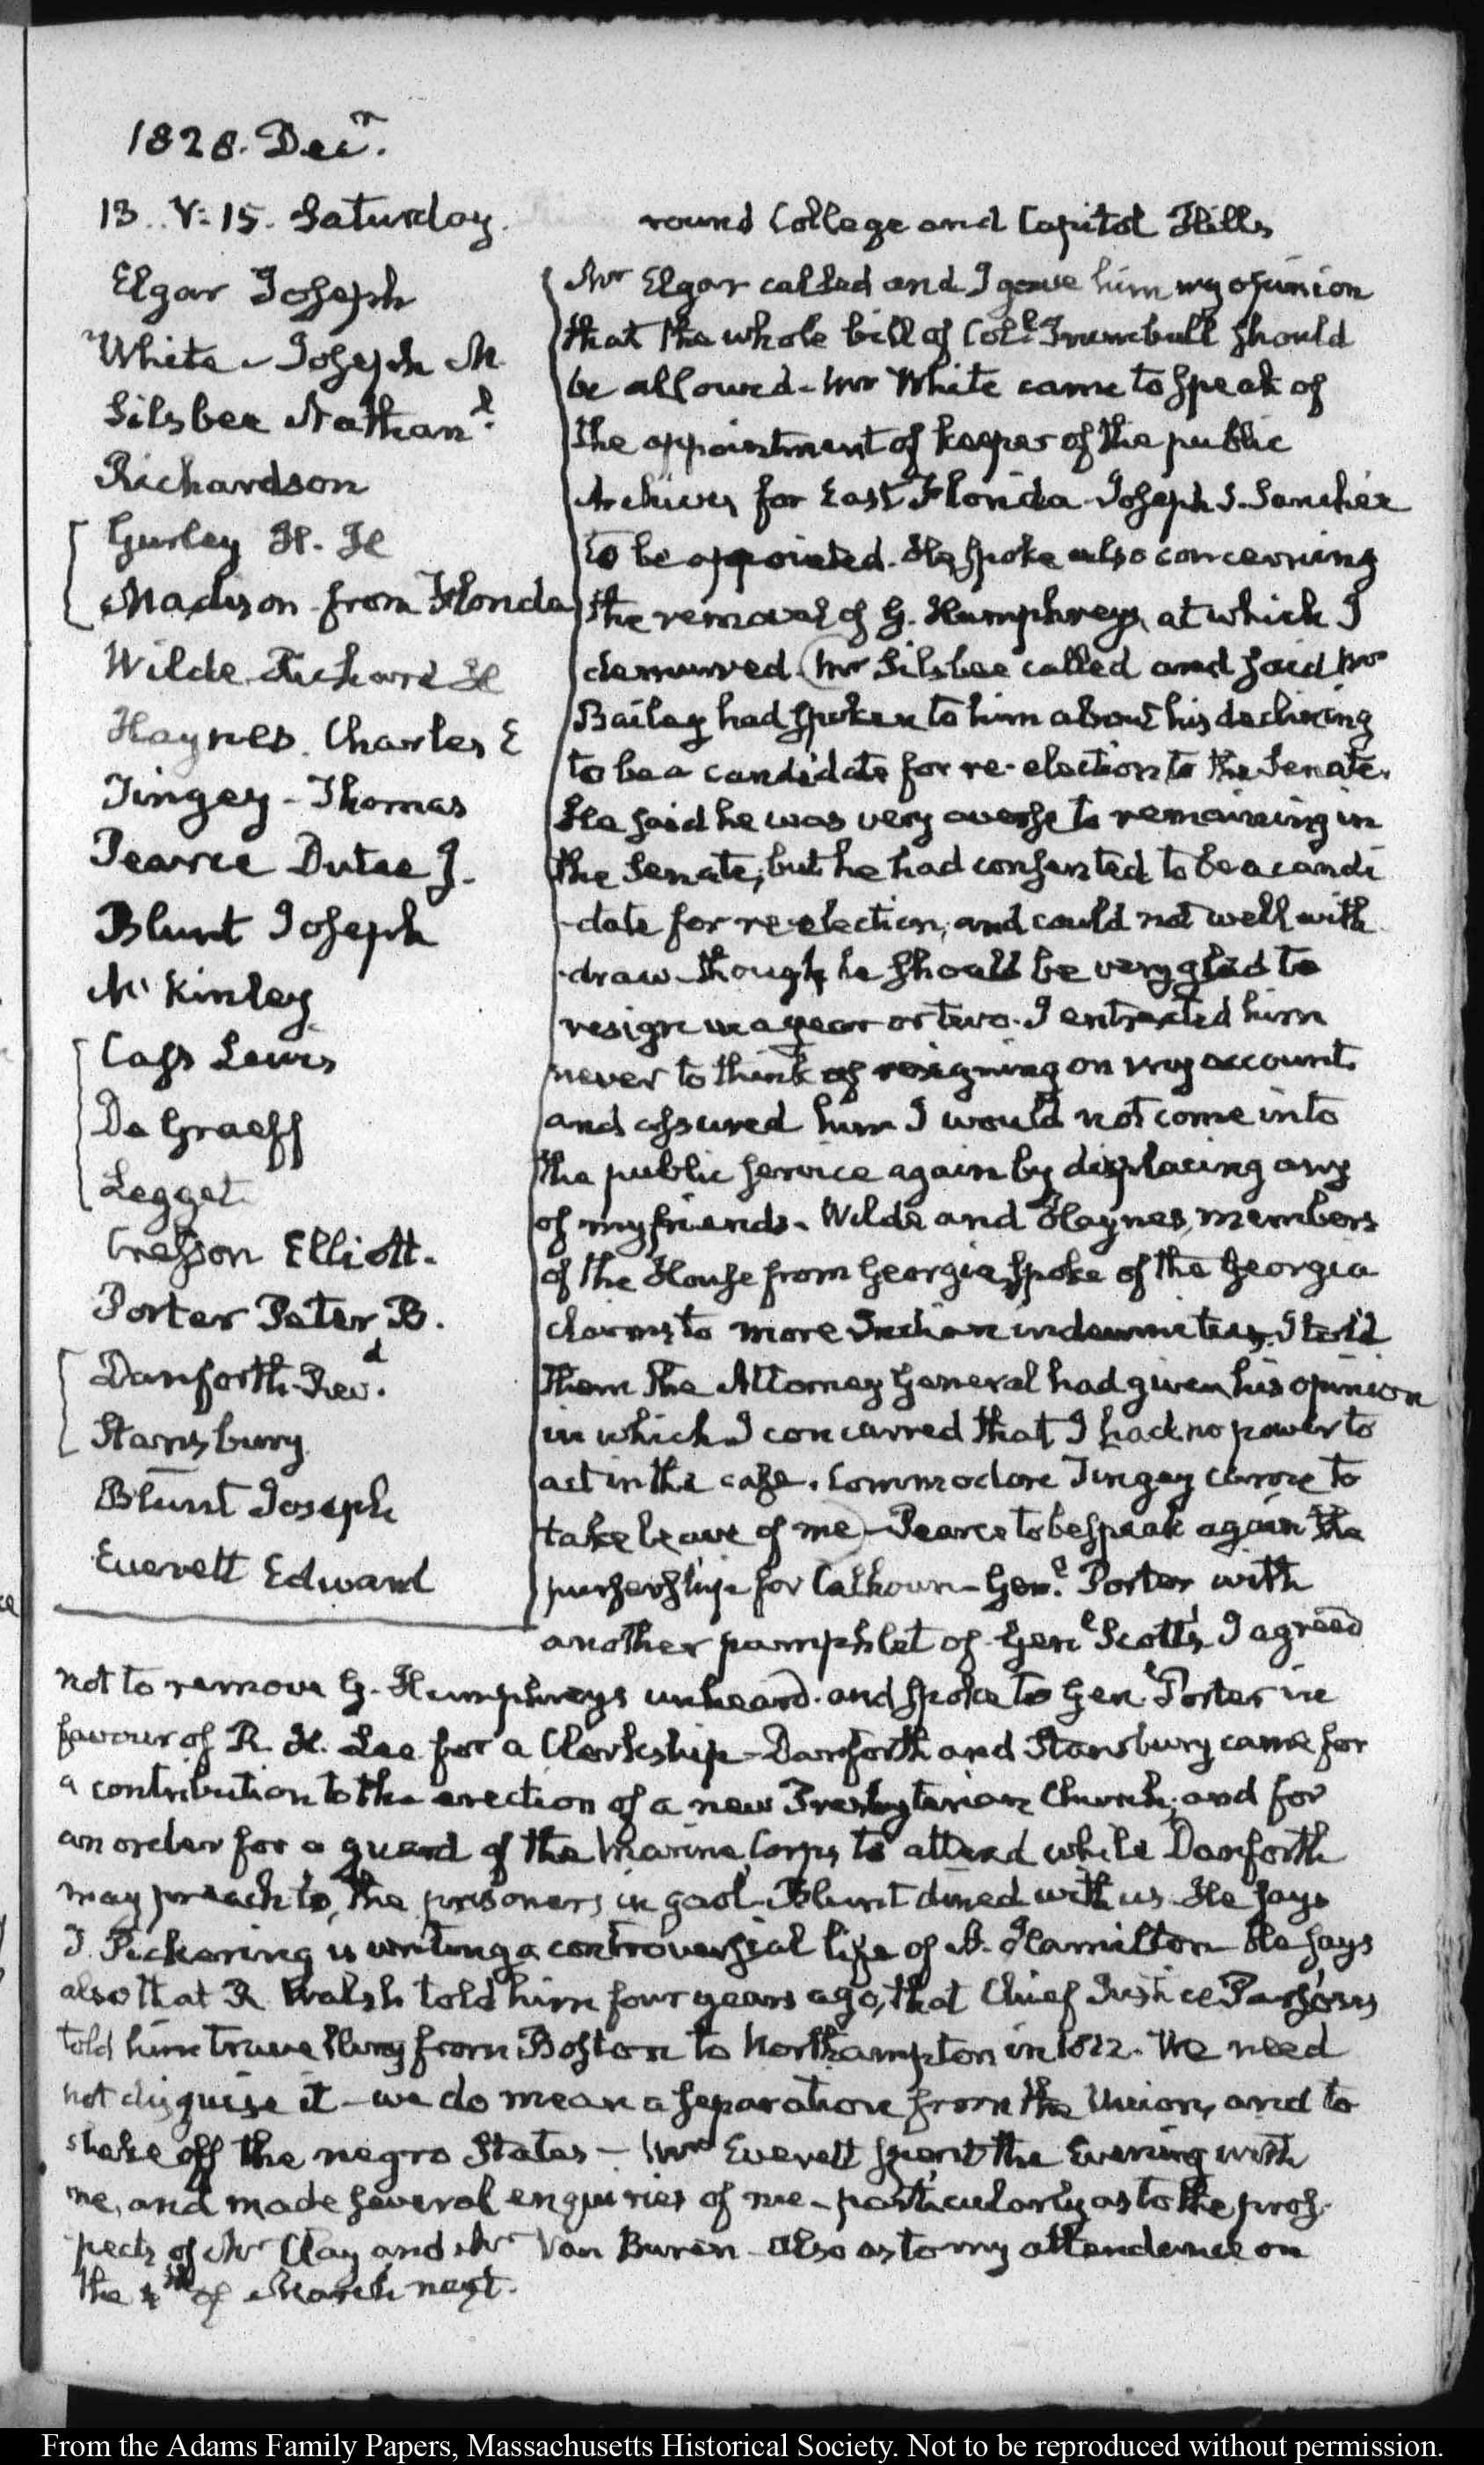 1828. Decr.
13. V:15. Saturday.
round College and Capitol Hills
Elgar Joseph
White Joseph M.
Silsbee Nathanl.
Richardson
Gurley H. H
Madison from Florida
Wilde Richard H
Haynes. Charles E
Tingey - Thomas
Pearce Dutee J.
Blunt Joseph
McKinley
Cass Lewis
De Graeff
Legget
Cresson Elliott.
Porter Peter B.
Danforth Revd.
Stansbury
Blunt Joseph
Everett Edward
Mr Elgar called and I gave him my opinion
that the whole bill of Coll. Trumbull should
be allowed - Mr White came to speak of
the appointment of keeper of the public
Archives for East Florida Joseph S. Sanchez
to be appointed. He spoke also concerning
the removal of G. Humphreys, at which I
demurred. Mr Silsbee called and said Mr
Bailey had spoken to him about his declining
to be a candidate for re-election to the Senate.
He said he was very averse to remaining in
the Senate; but he had consented to be a candi
-date for re-election, and could not well with
-draw though he should be very glad to
resign in a year or two. I entreated him
never to think of resigning on my account
and assured him I would not come into
the public service again by displacing any
of my friends. Wilde and Haynes, members
of the House from Georgia, spoke of the Georgia
claims to more Indian indemnities. I told
them the Attorney General had given his opinion
in which I concurred that I had no power to
act in the case. Commodore Tingey came to
take leave of me - Pearce to bespeak again the
pursership for Calhoun - Genl. Porter with
another pamphlet of Genl Scott's. I agreed
not to remove G. Humphreys unheard. and spoke to Genl Porter in
favour of R. H. Lee for a Clerkship - Danforth and Stansbury came for
a contribution to the erection of a new Presbyterian Church; and for
an order for a guard of the Marine Corps to attend while Danforth
may preach to the prisoners in gaol - Blunt dined with us. He says
T. Pickering is writing a controversial life of A. Hamilton - He says
also that R. Walsh told him four years ago, that Chief Justice Parsons
told him travelling from Boston to Northampton in 1812. We need
not disguise it - we do mean a separation from the Union, and to
shake off the negro States - Mr Everett spent the Evening with
me, and made several enquiries of me - particularly as to the pros-
pects of Mr Clay and Mr Van Buren - also as to my attendance on
the 4th of March next.
From the Adams Family Papers, Massachusetts Historical Society. Not to be reproduced without permission.